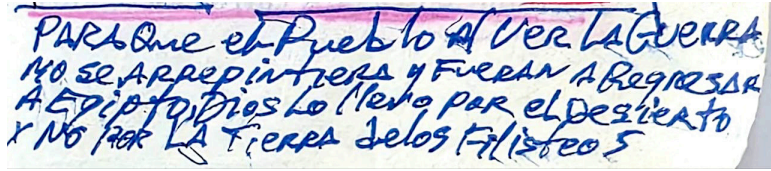 PARA Que el Pueblo Al Ver LA GUERRA
NO Se ARRepintiERA y FUERAN A RegResAR
A EgiptO, Dios Lo llevo PoR el DesieRto
Y NO PoR LA TieRRA de los Filisteos